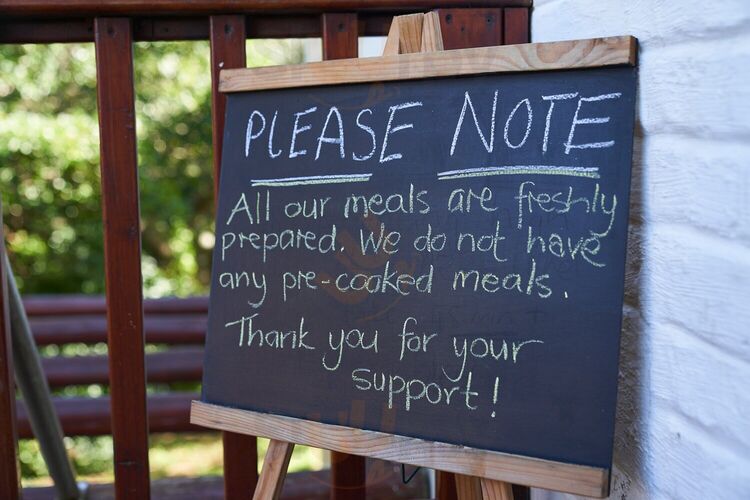 PLEASE NOTE
All our meals are freshly
prepared. We do not have
any pre-cooked meals.
Thank you for your
support!